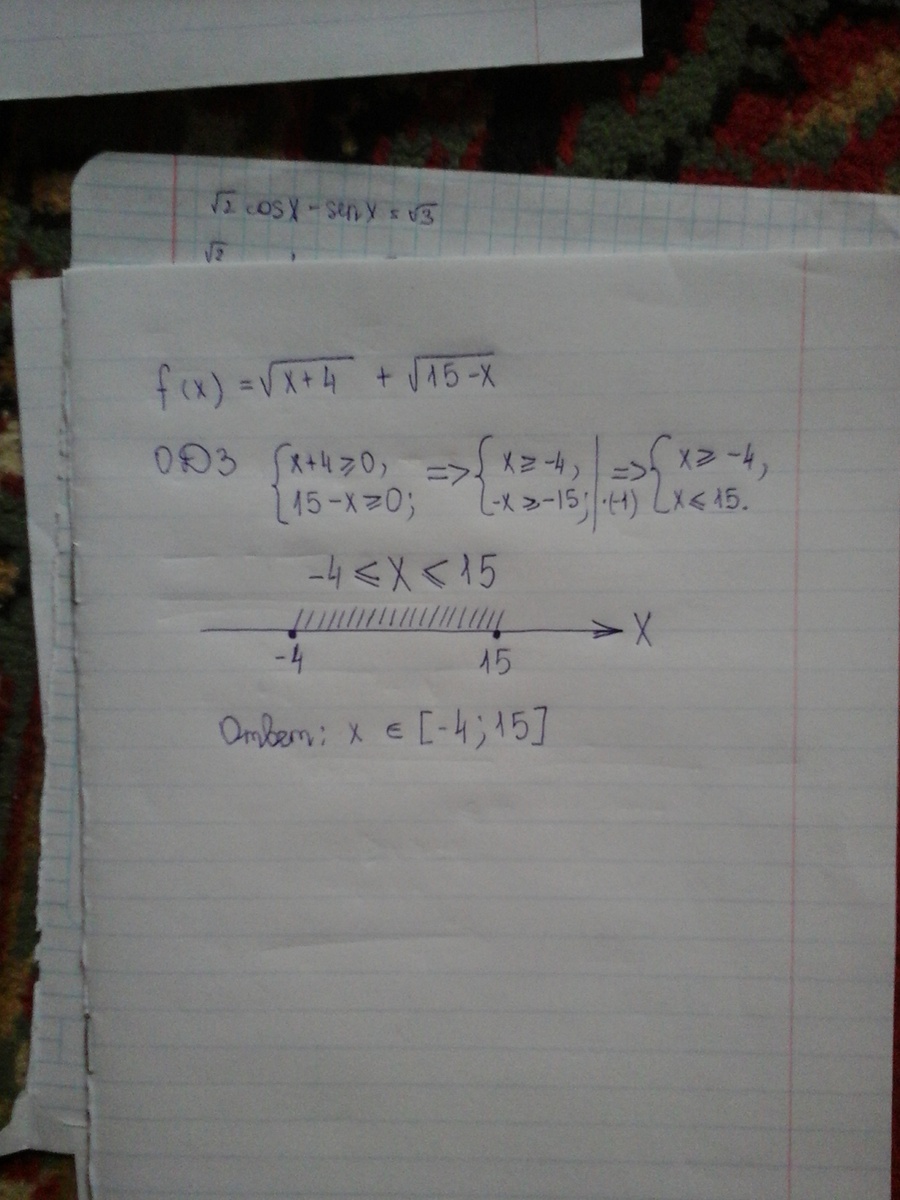 √2 cosx - senx = √3
√2
f(x) = √x+4 + √15-x
ОДЗ {x+4≥0, => {x≥-4, | => {x≥-4,
15-x≥0; -x≥-15; | ·(-1) x≤15.
-4 ≤ x ≤ 15
-4 15 X
Ответ: x ∈ [-4; 15]